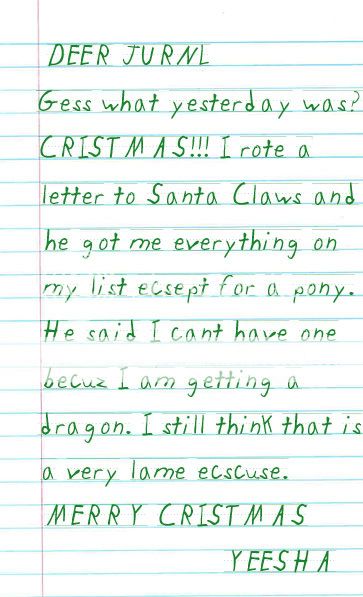 DEER JURNL
Gess what yesterday was?
CRISTMAS!!! I rote a
letter to Santa Claws and
he got me everything on
my list ecsept for a pony.
He said I cant have one
becuz I am getting a
dragon. I still think that is
a very lame ecscuse.
MERRY CRISTMAS
YEESHA